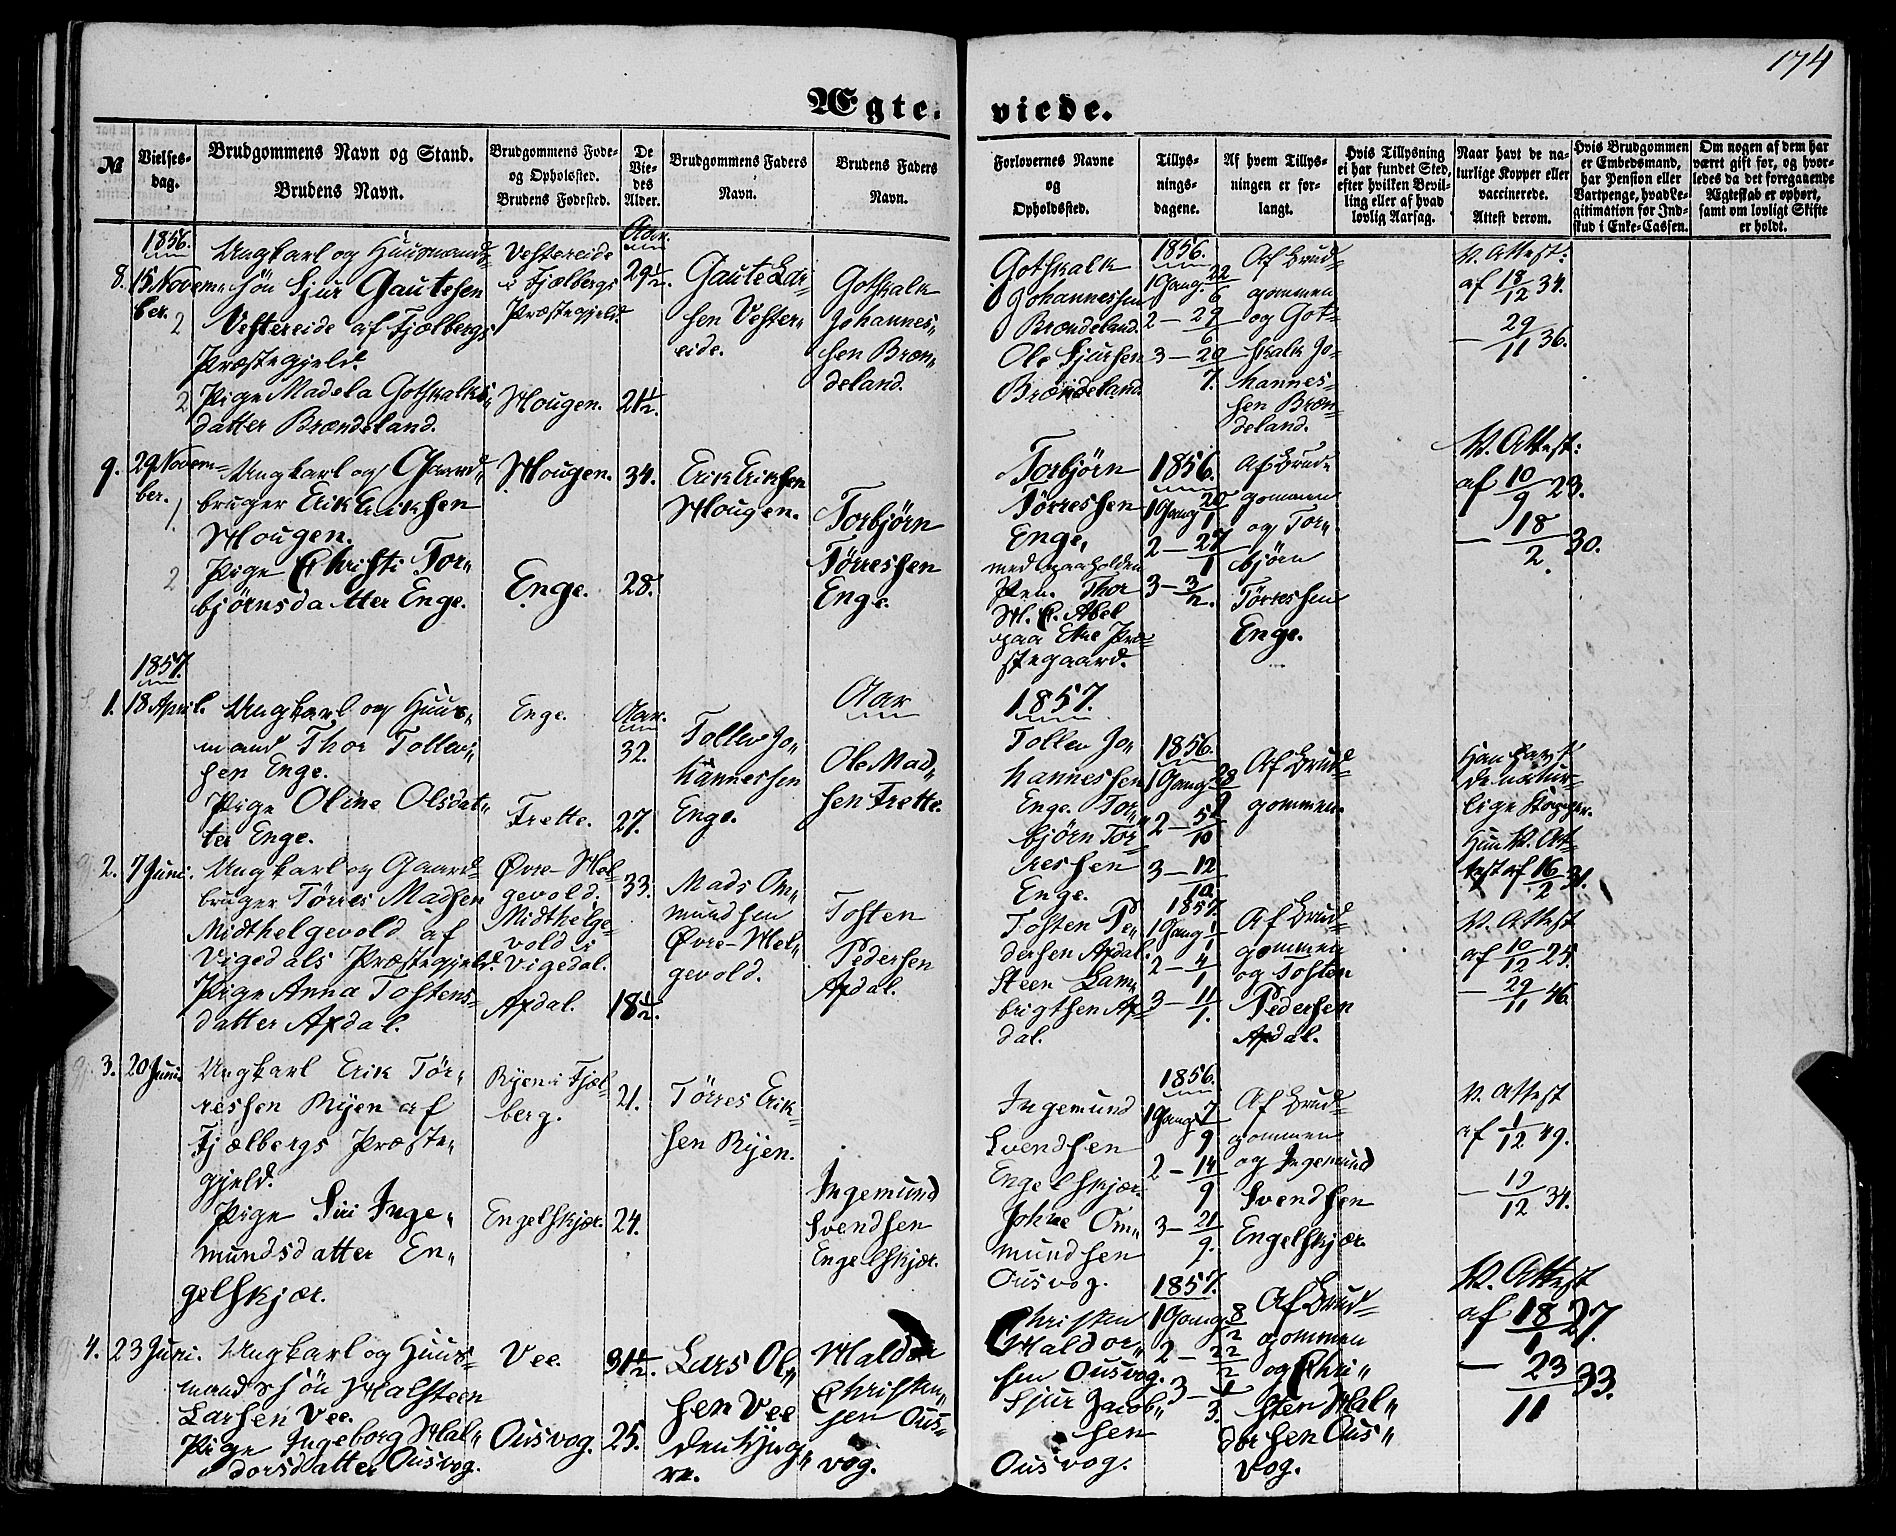 174
Ægte- viede.
№
Vielses-
dag.
Brudgommens Navn og Stand.
Brudens Navn.
Brudgommens Føde-
og Opholdsted.
Brudens Fødested.
De
Vie-
des
Alder.
Brudgommens Faders
Navn.
Brudens Faders
Navn.
Forlovernes Navne
og
Opholdssted.
Tillys-
nings-
dagene.
Af hvem Tillys-
ningen er for-
langt.
Hvis Tillysning
ei har fundet Sted,
efter hvilken Bevil-
ling eller af hvad
lovlig Aarsag.
Naar havt de na-
turlige Kopper eller
vaccinerede.
Attest derom.
Hvis Brudgommen
er Embedsmand,
har Pension eller
Vartpenge, hvad Le-
gitimation for Ind-
skud i Enke-Cassen.
Om nogen af dem har
været gift før, og hvor-
ledes da det foregaaende
Ægteskab er ophørt,
samt om lovligt Skifte
er holdt.
1856.
8. 15 Novem-
ber.
2
2
Ungkarl og Huusmands-
søn Sjur Gautesen
Vestereide af Fjælbergs
Præstegjeld.
Pige Madela Gotskalks-
datter Brændeland.
Vestereide
i Fjælbergs
Præstegjeld.
Hougen.
Aar.
29 1/2.
21 1/2.
Gaute Lar-
sen Vester-
eide.
Gotskalk
Johannes-
sen Bræn-
deland.
Gotskalk
Johannessen
Brændeland.
Ole Sjursen
Brændeland.
1856.
1 Gang 22/6
2 – 29/6
3 – 20/7.
Af Brud-
gommen
og Got-
skalk Jo-
hannes-
sen Bræn-
deland.
V. Attest:
af 18/12 34.
– 29/11 36.
9. 29 Novem-
ber.
1
2
Ungkarl og Gaard-
bruger Erik Eriksen
Hougen.
Pige Christi Tor-
bjørnsdatter Enge.
Hougen.
Enge.
34.
28.
Erik Eriksen
Hougen.
Torbjørn
Tørressen
Enge.
Torbjørn
Tørressen
Enge,
med paaholden
Pen. Thor
H. C. Abel
paa Etne Præ-
stegaard.
1856.
1 Gang 20/1
2 – 27/1
3 – 3/2.
Af Brud-
gommen
og Tor-
bjørn
Tørressen
Enge.
V. Attest:
af 10/9 23.
– 18/2. 30.
1857.
1. 18 April.
Ungkarl og Huus-
mand Thor Tollev-
sen Enge.
Pige Oline Olsdat-
ter Enge.
Enge.
Frette.
Aar.
32.
27.
Tollev Jo-
hannessen
Enge.
Aar
Ole Mad-
sen Frette.
1857.
Tollev Jo-
hannessen
Enge. Tor-
bjørn Tør-
ressen
Enge.
1856.
1 Gang 28/9
2 – 5/10
3 – 12/10.
Af Brud-
gommen.
Han havt
de natur-
lige Kopper.
Hun V. At-
test af 16/2 31.
2. 7 Juni.
Ungkarl og Gaard-
bruger Tørres Madsen
Midthelgevold af
Vigedals Præstegjeld.
Pige Anna Tostens-
datter Axdal.
Øvre-Hel-
gevold.
Midthelge-
vold i
Vigedal.
Axdal.
33.
18 1/2.
Mads Om-
mundsen
Øvre-Hel-
gevold.
Tosten
Pedersen
Axdal.
Tosten Pe-
dersen Axdal.
Steen Lam-
brigtsen Ax-
dal.
1857.
1 Gang 1/1
2 – 4/1
3 – 11/1.
Af Brud-
gommen
og Tosten
Pedersen
Axdal.
V. Attest
af 10/12 25.
– 29/11 46.
3. 20 Juni.
Ungkarl Erik Tør-
ressen Ryen af
Fjælbergs Præste-
gjeld.
Pige Siri Inge-
mundsdatter En-
gelskjær.
Ryen i Fjæl-
berg.
Engelskjær.
21.
24.
Tørres Erik-
sen Ryen.
Ingemund
Svendsen
Engelskjær.
Ingemund
Svendsen
Engelskjær.
Johne Om-
mundsen
Ousvog.
1856.
1 Gang 7/9
2 – 14/9
3 – 21/9.
Af Brud-
gommen
og Ingemund
Svendsen
Engelskjær.
V. Attest
af 1/12 49.
– 19/12 34.
4. 23 Juni.
Ungkarl og Huus-
mandssøn Halsteen
Larsen Vee.
Pige Ingeborg Hal-
dorsdatter Ousvog.
Vee.
Ousvog.
31 1/2.
25.
Lars Ol-
sen Vee
den Yng-
re.
Haldor
Christen-
sen Ous-
vog.
Christen
Haldor-
sen Ousvog.
Sjur Jacob-
sen
Ousvog.
1857.
1 Gang 8/2
2 – 22/2
3 – 1/3.
Af Brud-
gommen
og Chri-
sten Hal-
dorsen Ous-
vog.
V. Attest
af 18/1 27.
– 23/11 33.